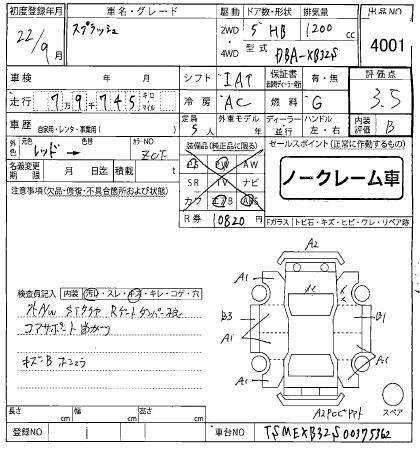 初度登録年月 車名・グレード 駆動 ドア数・形状 排気量 出品NO
22/9月 スプラッシュ 2WD 4WD 5 HB 1200 cc
型式 DBA-XB32S 4001
車検 年 月 シフト IAT 保証書 有・無 評価点
走行 7万9千745 キロ マイル 冷房 AC 燃料 G 3.5
車歴 自家用・レンタ・事業用( ) 定員 5人 外車モデル 年 ディーラー 並行 ハンドル 左・右 内装評価 B
外色 元色 レッド → 色替 カラーNO ZCF
装備品(純正品に限る) セールスポイント(正常に作動するもの)
名義変更期限 月 日 積載 t
PS PW AW
SR TV ナビ
カワ エアB ABS
ノークレーム車
注意事項(欠品・修復・不具合箇所および状態)
R券 10820 円
Fガラス トビ石・キズ・ヒビ・ワレ・リペア跡
A2
A1 A1
B3 B1
A1 A1
A1 A1
検査員記入 内装 汚れ・スレ・キズ・キレ・コゲ・穴
コアサポート
キズB
スペア
長さ cm 幅 cm 高さ cm
登録NO 車台NO TSMEXB32S00375362